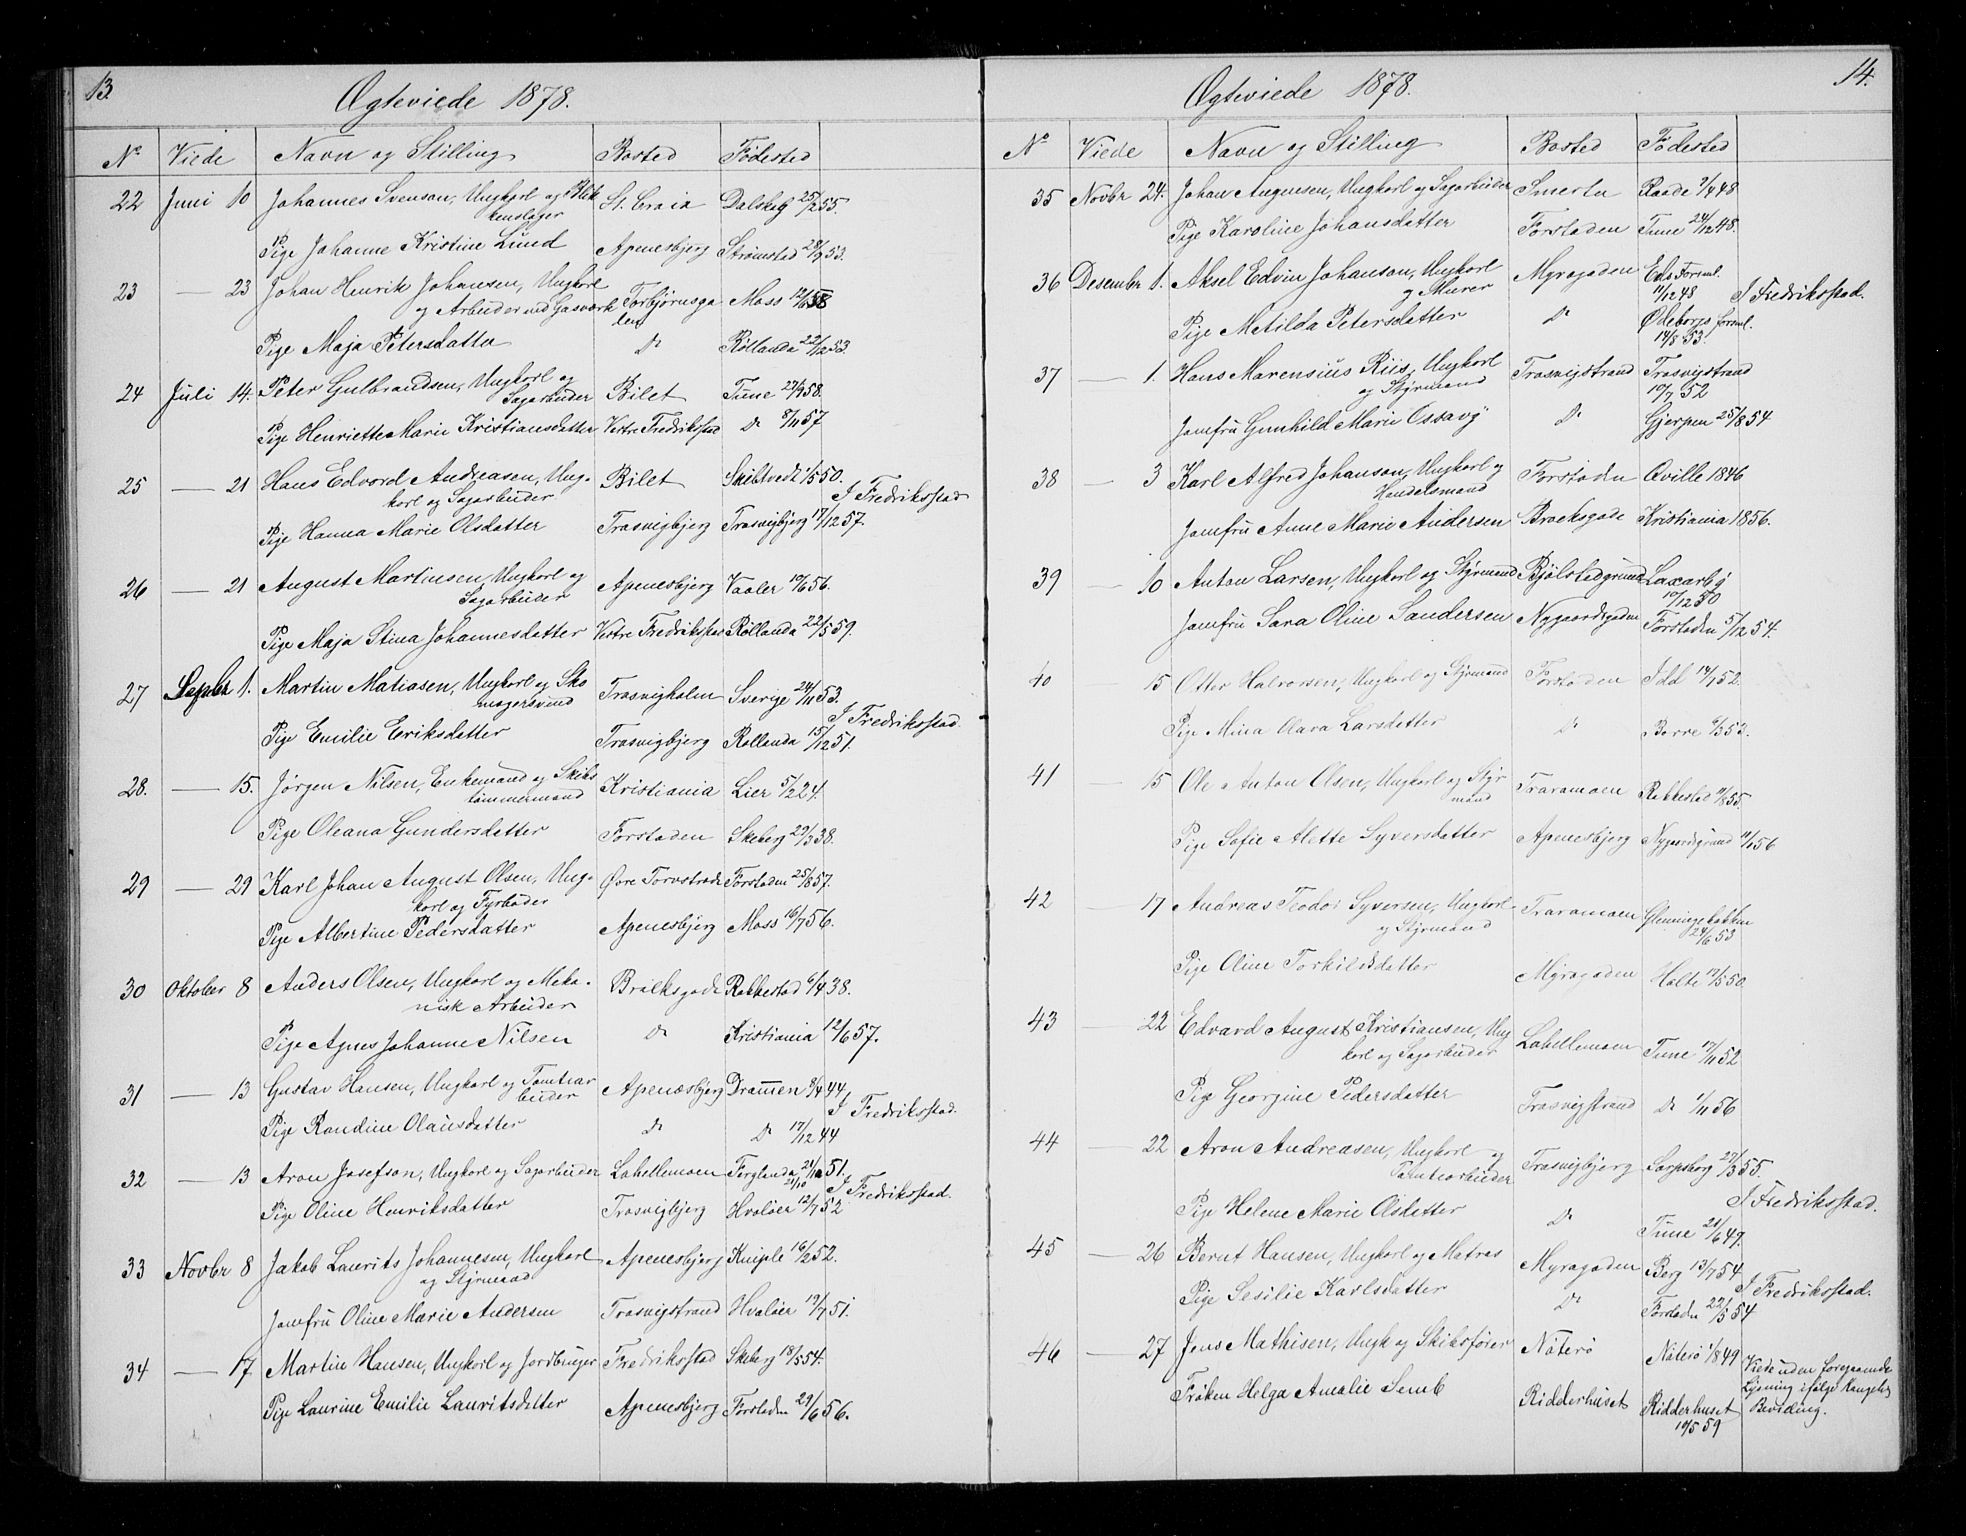 13.
Ægteviede 1878.
No Viede Navn og Stilling Bosted Fødested
22 Juni 10 Johannes Svenson, Ungkarl og Blik St. Croix Dalskog 25/2 55.
kenslager
Pige Johanne Kristine Lund Apenesbjerg Strømstad 28/9 53.
23 — 23 Johan Henrik Johansen, Ungkarl
og Arbeider ved Gasværk Torbjørnsga Moss
den
Pige Maja Petersdatter Do Röllanda 22/12 53.
24 Juli 14. Peter Gulbrandsen, Ungkarl og Bilet Tune 27/9 58.
Sagarbeider
Pige Henriette Marie Kristiansdatter Vestre Fredriksstad Do 8/11 57
25 — 21 Hans Edvard Andreasen, Ung- Bilet Skibtvedt 1/5 50.
karl og Sagarbeider I Fredriksstad
Pige Hanna Marie Olsdatter Trosvigbjerg Trosvigbjerg 17/12 57.
26 — 21 August Martinsen, Ungkarl og Apenesbjerg Vaaler 10/6 56.
Sagarbeider
Pige Maja Stina Johannesdatter Vestre Fredriksstad Röllanda 22/5 59.
27 Septbr 1. Martin Matiasen, Ungkarl og Sko Trosvigholm Sverige 24/11 53.
magersvend I Fredriksstad.
Pige Emilie Eriksdatter Trosvigbjerg Röllanda 15/12 51.
28. — 15. Jørgen Nilsen, Enkemand og Skibs Kristiania Lier 5/2 24.
tømmermand
Pige Oleana Gundersdatter Forstaden Skeberg 29/3 38.
29 — 29 Karl Johan August Olsen, Ung- Øvre Torvstrade Forstaden 25/8 57.
karl og Fyrbøder
Pige Albertine Pedersdatter Apenesbjerg Moss 16/7 56.
30 Oktober 8 Anders Olsen, Ungkarl og Meka- Brøksgade Rakkestad 6/4 38.
nisk Arbeider
Pige Agnes Johanne Nilsen Do Kristiania 12/6 57.
31 — 13 Gustav Hansen, Ungkarl og Tomtear Apenæsbjerg Drammen 9/4 44
beider I Fredriksstad.
Pige Randine Olausdatter Do Do 17/12 44
32 — 13 Aron Josefson, Ungkarl og Sagarbeider Labellemoen Ferglanda 21/10 51.
21/10 I Fredriksstad.
Pige Oline Henriksdatter Trosvigbjerg Hvaløer 12/7 52
33 Novbr 8 Jakob Laurits Johannesen, Ungkarl Apenesbjerg Kniple 16/2 52.
og Styrmand
Jomfru Oline Marie Andersen Trosvigstrand Hvaløer 19/7 51.
34 — 17. Martin Hansen, Ungkarl og Jordbruger Fredriksstad Skeberg 18/5 54.
Pige Laurine Emilie Lauritsdatter Apenesbjerg Forstaden 29/6 56.
14.
Ægteviede 1878.
No Viede Navn og Stilling Bosted Fødested
35 Novbr 24. Johan Augensen, Ungkarl og Sagarbeider Smertu Raade 9/4 48
Pige Karoline Johansdatter Forstaden Tune 24/12 48.
36 Desember 1. Aksel Edvin Johanson, Ungkarl Myragaden Eds Forsml.
og Murer 11/12 48 I Fredriksstad.
Pige Matilda Petersdatter Do Ødeborgs forsml.
14/8 53.
37 — 1. Hans Marensius Riis, Ungkarl Trosvigstrand Trosvigstrand
og Styrmand 10/7 52
Jomfru Gunhild Marie Ossavg Do Gjerpen 25/8 54
38 — 3 Karl Alfred Johanson, Ungkarl og Forstaden Qville 1846
Handelsmand
Jomfru Anne Marie Andersen Brøksgade Kristiania 1856.
39 — 10 Anton Larsen, Ungkarl og Styrmand Bjølstadgrund Laxarby
10/12 50
Jomfru Sara Oline Sandersen Nygaardsgaden Forstaden 5/12 54.
40 — 15 Otter Halvorsen, Ungkarl og Styrmand Forstaden Idd 14/1 52.
Pige Mina Clara Larsdatter Do Borre 6/3 53.
41 — 15 Ole Anton Olsen, Ungkarl og Styr Traramoen Rakkestad 11/8 55.
mand
Pige Sofie Alette Syversdatter Apenesbjerg Nygaardsgrund 11/1 56
42 — 17 Andreas Teodor Syversen, Ungkarl Traramoen Glemmingebakken
og Styrmand 24/6 53
Pige Oline Torkildsdatter Myragaden Holte 17/5 50.
43 — 22 Edvard August Kristiansen, Ung Labellemoen Tune 17/11 52
karl og Sagarbeider
Pige Georgine Pedersdatter Trosvigstrand Do 1/11 56
44 — 22 Aron Andreasen, Ungkarl og Trosvigbjerg Sarpsborg 27/3 55.
Tomtearbeider I Fredriksstad.
Pige Helene Marie Olsdatter Do Tune 21/6 49.
45 — 26 Bernt Hansen, Ungkarl og Matros Myragaden Berg 13/7 54
Pige Sesilie Karlsdatter Do Forstaden 22/5 54 I Fredriksstad.
46 — 27 Jens Mathisen, Ungk og Skibsfører Nøterø Nøterø 1/8 49 Viede uden foregaaende
Frøken Helga Amalie Semb Ridderhuset Ridderhuset Lysning ifølge Kongelig
10/5 59 Bevilling.